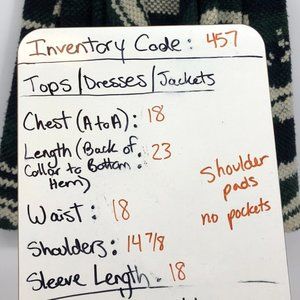 Inventory Code: 457
Tops/Dresses/Jackets
Chest (A to A): 18
Length (Back of: 23
Collar to Bottom
Hem)
Shoulder
pads
no pockets
Waist: 18
Shoulders: 14 7/8
Sleeve Length: 18